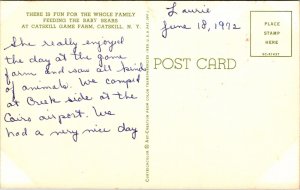 THERE IS FUN FOR THE WHOLE FAMILY
FEEDING THE BABY BEARS
AT CATSKILL GAME FARM, CATSKILL, N. Y.
She really enjoyed
the day at the game
farm and saw all kinds
of animals. We camped
at Creek side at the
Cairo airport. We
had a very nice day
Laurie
June 18, 1972
POST CARD
PLACE
STAMP
HERE